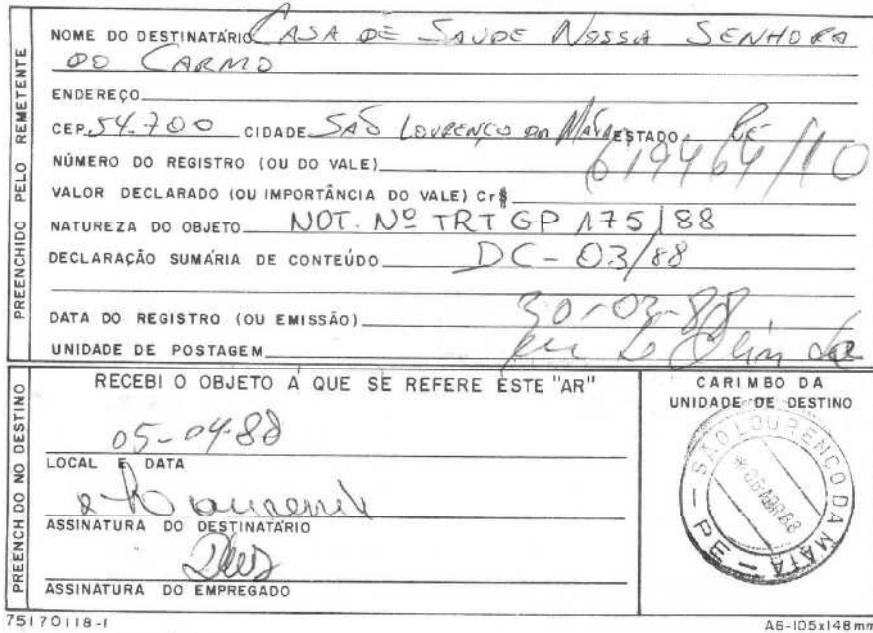 PREENCHIDO PELO REMETENTE
NOME DO DESTINATÁRIO CASA DE SAUDE NOSSA SENHORA
DO CARMO
ENDEREÇO
CEP. 54.700 CIDADE SÃO LOURENÇO DA MATA ESTADO PE
NÚMERO DO REGISTRO (OU DO VALE) 619464/10
VALOR DECLARADO (OU IMPORTÂNCIA DO VALE) Cr$
NATUREZA DO OBJETO NOT. Nº TRT GP 175/88
DECLARAÇÃO SUMÁRIA DE CONTEÚDO DC-03/88
DATA DO REGISTRO (OU EMISSÃO) 30-03-88
UNIDADE DE POSTAGEM
PREENCHIDO NO DESTINO
RECEBI O OBJETO A QUE SE REFERE ESTE "AR"
05-04-88
LOCAL E DATA
ASSINATURA DO DESTINATÁRIO
ASSINATURA DO EMPREGADO
CARIMBO DA
UNIDADE DE DESTINO
SÃO LOURENÇO DA MATA
PE
75170118-1
A6-105x148mm